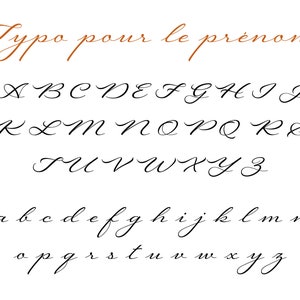 Typo pour le prénom
A B C D E F G H I J
K L M N O P Q R S
T U V W X Y Z
a b c d e f g h i j k l m n
o p q r s t u v w x y z